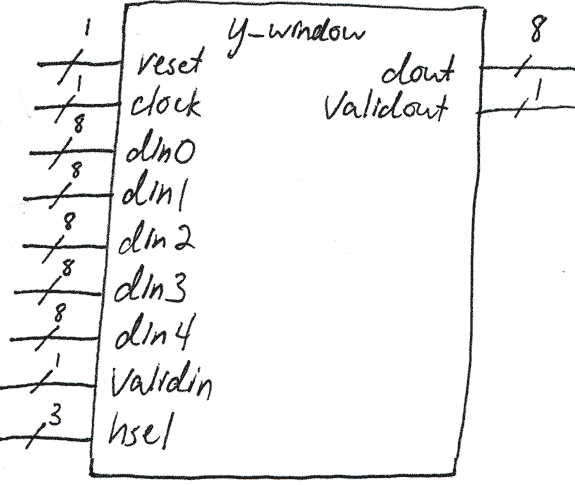 y_window
1 reset
1 clock
8 din0
8 din1
8 din2
8 din3
8 din4
1 validin
3 hsel
dout 8
validout 1